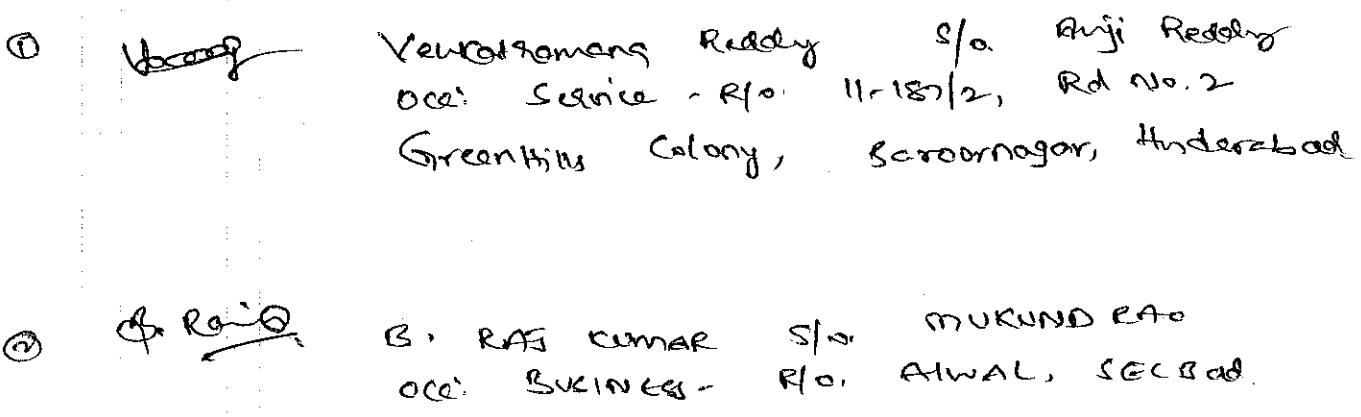 ① Venkatramana Reddy S/o. Anji Reddy
occ: Service - R/o. 11-187/2, Rd No. 2
Green Hills Colony, Saroornagar, Hyderabad
② B. Raj B. RAJ KUMAR S/o. MUKUND RAO
occ: BUSINESS - R/o. ALWAL, SECBad.